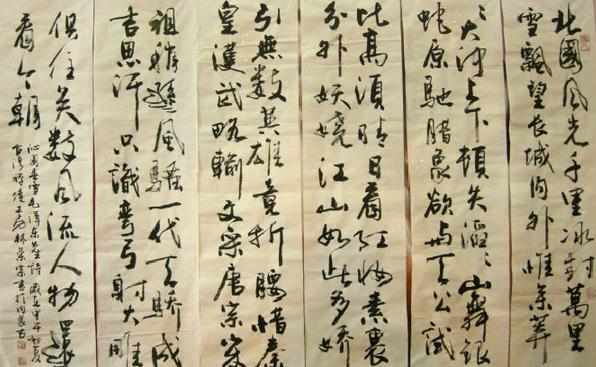 北國風光千里冰封萬里
雪飄望長城內外惟余莽
々大河上下頓失滔々山舞銀
蛇原馳腊象欲与天公試
比高須晴日看紅妝素裹
分外妖嬈江山如此多嬌
引無数英雄竟折腰惜秦
皇漢武略輸文采唐宗宋
祖稍遜風騷一代天驕成
吉思汗只識彎弓射大雕
俱往矣数風流人物還
看今朝
沁園春雪毛澤東先生詩